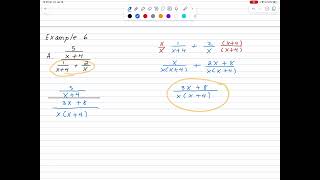 Example 6
A. 5
x + 4
1/(x+4) + 2/x
5
x + 4
3x + 8
x(x+4)
x/x · 1/(x+4) + 2/x · (x+4)/(x+4)
x/(x(x+4)) + (2x + 8)/(x(x+4))
3x + 8
x(x+4)